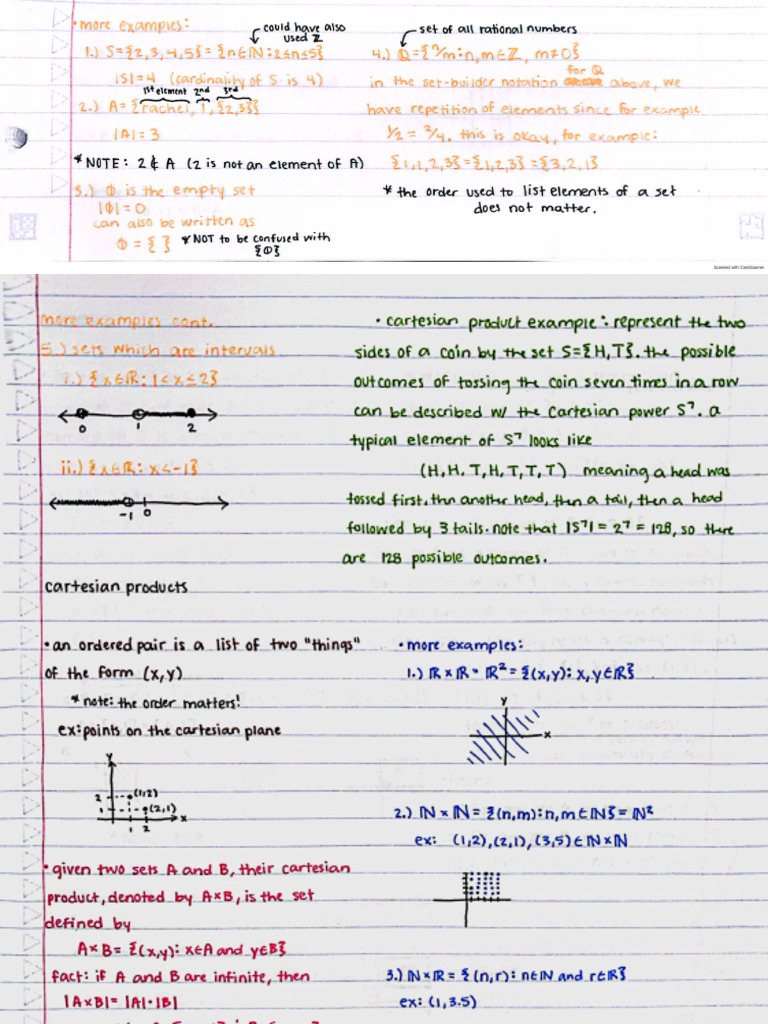 • more examples:
could have also
used ℤ
1.) S={2,3,4,5} = {n∈ℕ : 2≤n≤5}
|S|=4 (cardinality of S is 4)
1st element 2nd 3rd
2.) A={rachel, 1, {2,3}}
|A|=3
*NOTE: 2∉A (2 is not an element of A)
3.) Φ is the empty set
|Φ|=0
can also be written as
Φ = { } *NOT to be confused with
{Φ}
set of all rational numbers
4.) ℚ={n/m : n,m∈ℤ, m≠0}
for ℚ
in the set-builder notation above, we
have repetition of elements since for example
1/2 = 2/4. this is okay, for example:
{1,1,2,3}={1,2,3}={3,2,1}
* the order used to list elements of a set
does not matter.
Scanned with CamScanner
more examples cont.
5.) sets which are intervals
i.) {x∈ℝ: 1<x≤2}
0 1 2
ii.) {x∈ℝ: x<-1}
-1 0
• cartesian product example: represent the two
sides of a coin by the set S={H,T}. the possible
outcomes of tossing the coin seven times in a row
can be described w/ the cartesian power S⁷. a
typical element of S⁷ looks like
(H,H,T,H,T,T,T) meaning a head was
tossed first, thn another head, then a tail, then a head
followed by 3 tails. note that |S⁷| = 2⁷ = 128, so there
are 128 possible outcomes.
cartesian products
• an ordered pair is a list of two "things"
of the form (x,y)
*note: the order matters!
ex: points on the cartesian plane
y
2 (1,2)
1 (2,1)
1 2 x
• given two sets A and B, their cartesian
product, denoted by A×B, is the set
defined by
A×B= {(x,y): x∈A and y∈B}
fact: if A and B are infinite, then
|A×B|= |A|·|B|
• more examples:
1.) ℝ×ℝ = ℝ² = {(x,y): x,y∈ℝ}
y
x
2.) ℕ×ℕ = {(n,m): n,m∈ℕ} = ℕ²
ex: (1,2),(2,1),(3,5)∈ℕ×ℕ
3.) ℕ×ℝ = {(n,r): n∈ℕ and r∈ℝ}
ex: (1,3.5)